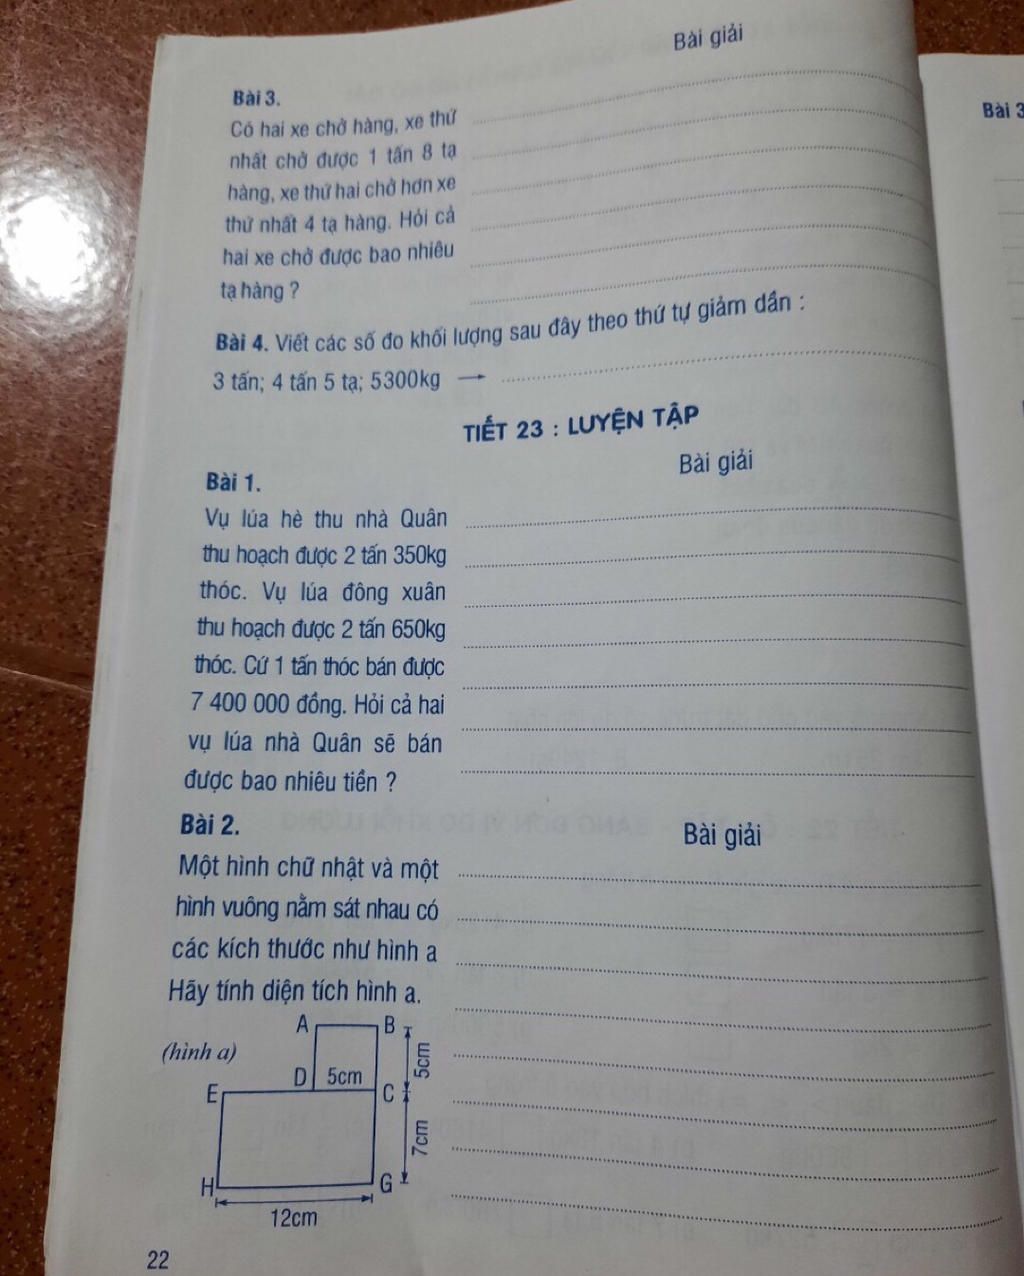 Bài giải
Bài 3.
Có hai xe chở hàng, xe thứ
nhất chở được 1 tấn 8 tạ
hàng, xe thứ hai chở hơn xe
thứ nhất 4 tạ hàng. Hỏi cả
hai xe chở được bao nhiêu
tạ hàng ?
Bài 4. Viết các số đo khối lượng sau đây theo thứ tự giảm dần :
3 tấn; 4 tấn 5 tạ; 5300kg →
TIẾT 23 : LUYỆN TẬP
Bài giải
Bài 1.
Vụ lúa hè thu nhà Quân
thu hoạch được 2 tấn 350kg
thóc. Vụ lúa đông xuân
thu hoạch được 2 tấn 650kg
thóc. Cứ 1 tấn thóc bán được
7 400 000 đồng. Hỏi cả hai
vụ lúa nhà Quân sẽ bán
được bao nhiêu tiền ?
Bài 2.
Bài giải
Một hình chữ nhật và một
hình vuông nằm sát nhau có
các kích thước như hình a
Hãy tính diện tích hình a.
(hình a)
A
B
D
5cm
5cm
E
C
7cm
H
G
12cm
22
Bài 3